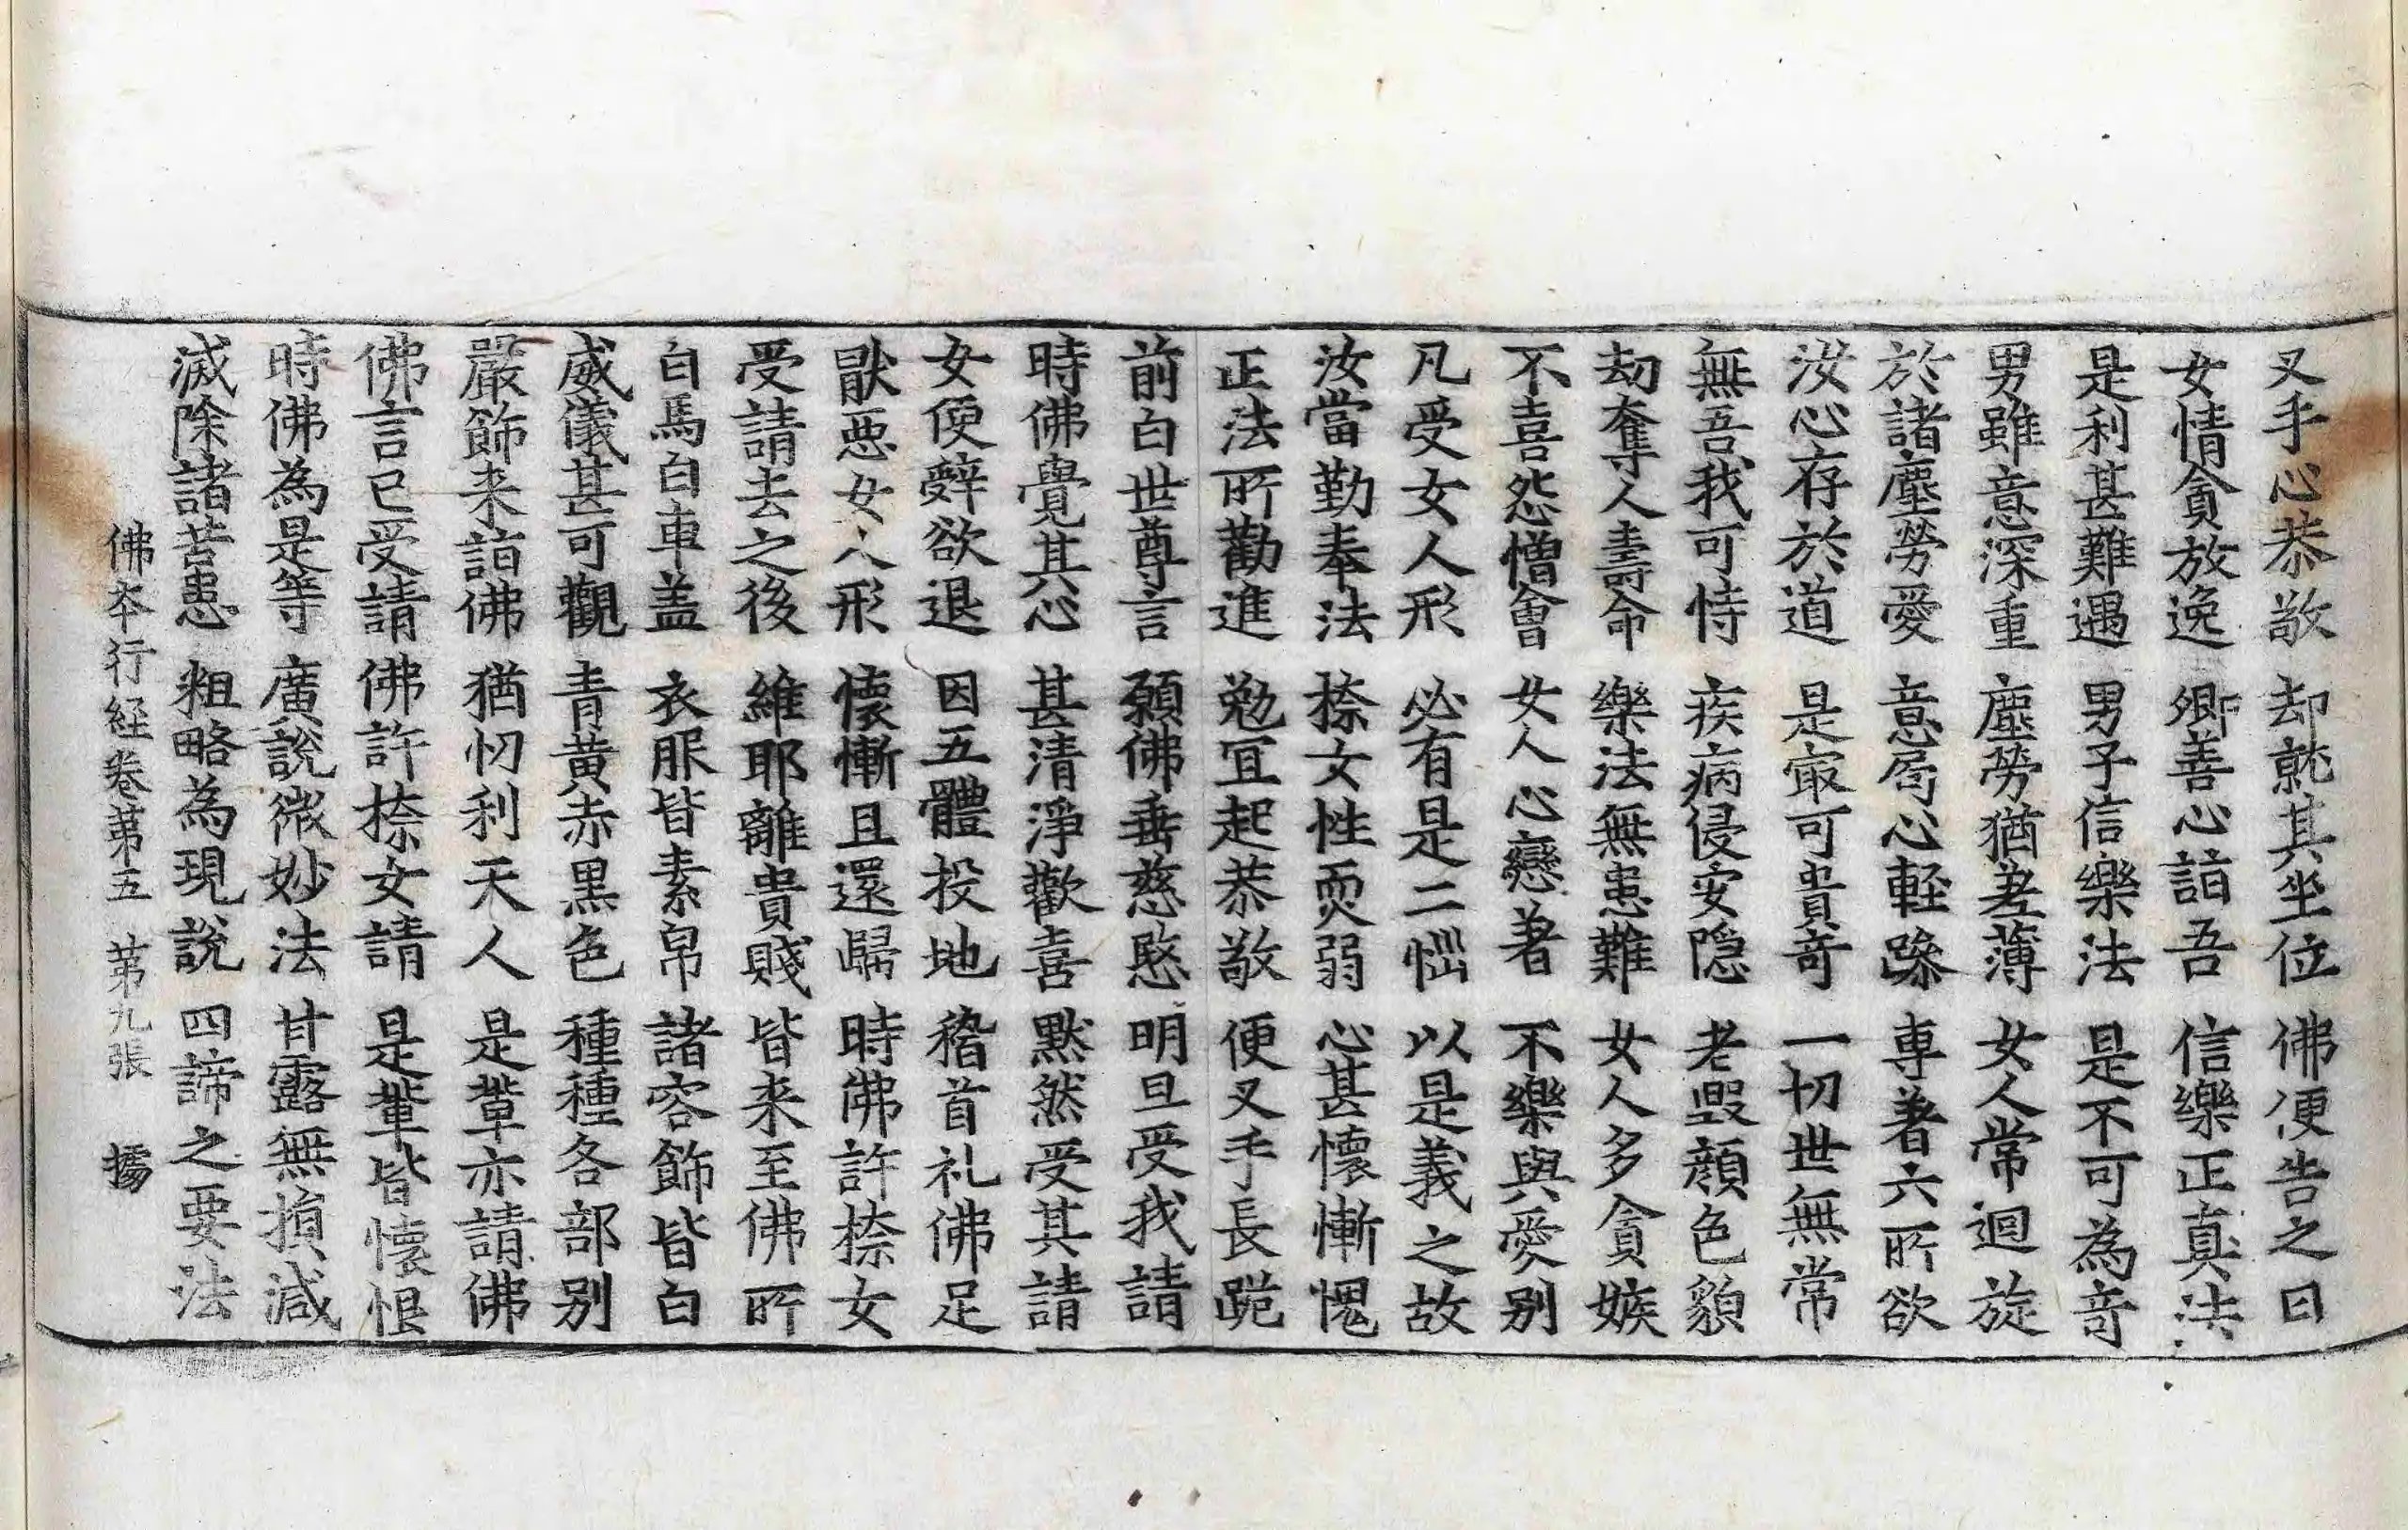 叉手心恭敬 却就其坐位 佛便告之曰
女情貪放逸 卿善心詣吾 信樂正真法
是利甚難遇 男子信樂法 是不可為奇
男雖意深重 塵勞猶差薄 女人常迴旋
於諸塵勞愛 意局心輕躁 專著六所欲
汝心存於道 是㝡可貴奇 一切世無常
無吾我可恃 疾病侵安隐 老毀顏色貌
劫奪人壽命 樂法無患難 女人多貪嫉
不喜怨憎會 女人心戀著 不樂與愛別
凡受女人形 必有是二惱 以是義之故
汝當勤奉法 㮈女性耎弱 心甚懷慚愧
正法所勸進 勉宜起恭敬 便叉手長跪
前白世尊言 願佛垂慈愍 明旦受我請
時佛覺其心 甚清淨歡喜 默然受其請
女便辭欲退 因五體投地 稽首礼佛足
猒惡女人形 懷慚且還歸 時佛許㮈女
受請去之後 維耶離貴賤 皆来至佛所
白馬白車盖 衣服皆素帛 諸容飾皆白
威儀甚可觀 青黃赤黑色 種種各部別
嚴飾来詣佛 猶忉利天人 是輩亦請佛
佛言已受請 佛許㮈女請 是輩皆懷恨
時佛為是等 廣說微妙法 甘露無損減
滅除諸苦患 粗略為現說 四諦之要法
佛本行經卷第五 第九張